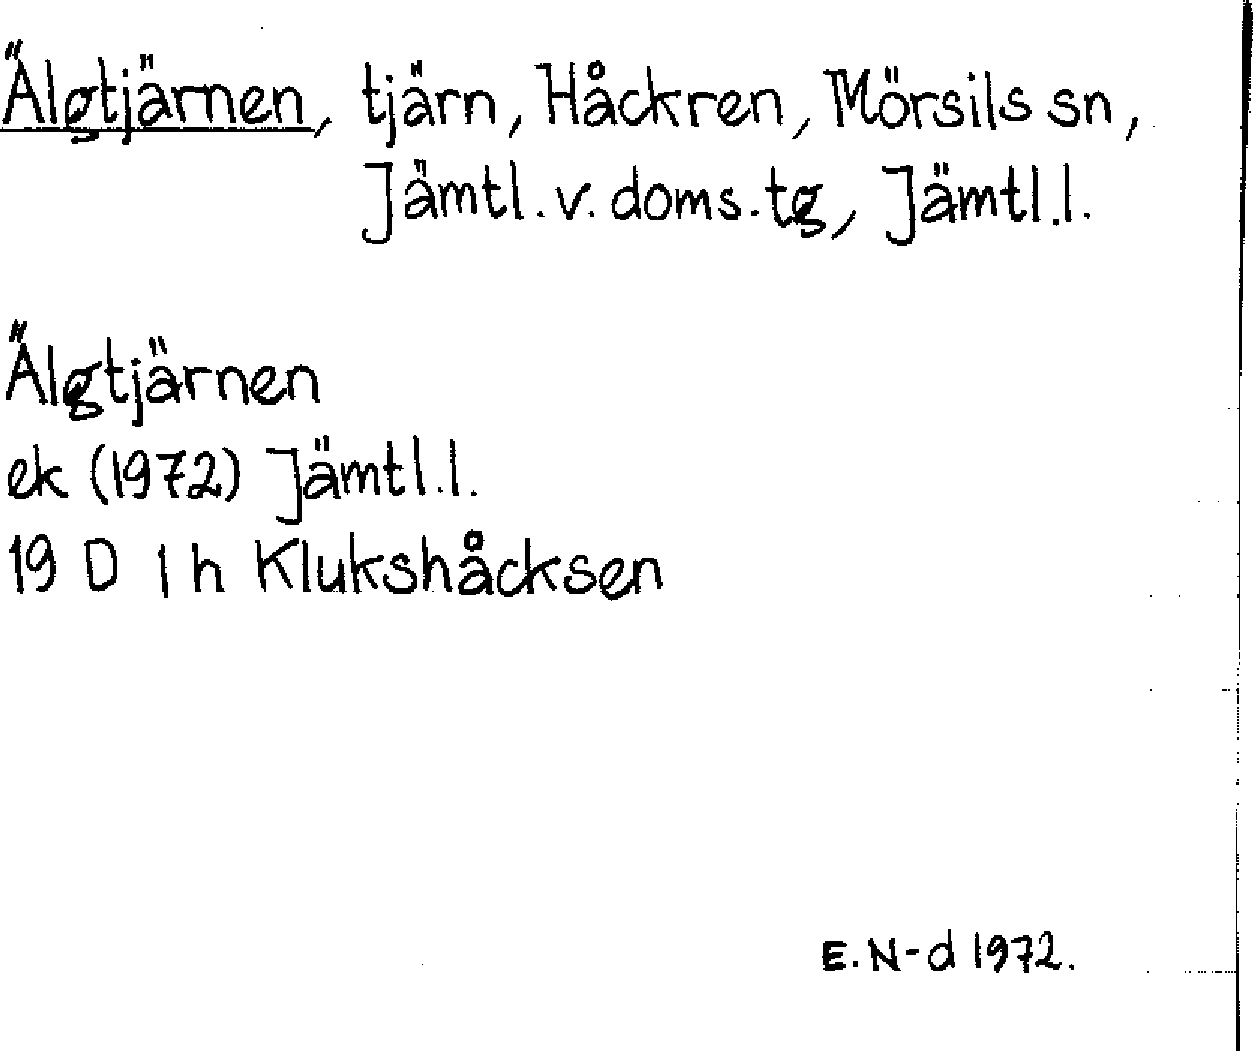 Älgtjärnen, tjärn, Håckren, Mörsils sn,
Jämtl. v. doms. tg, Jämtl. l.
Älgtjärnen
ek (1972) Jämtl. l.
19 D 1 h Klukshåcksen
E. N-d 1972.